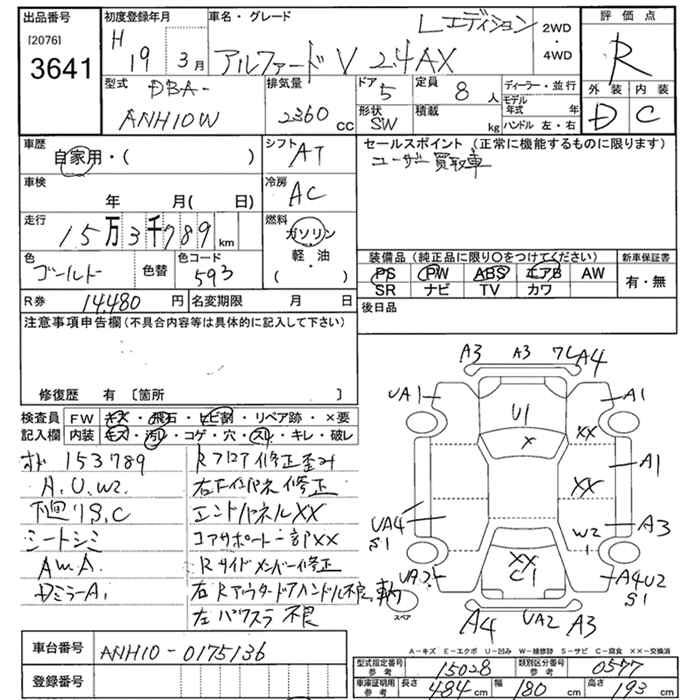 出品番号
[2076]
3641
初度登録年月
H 19 3月
車名・グレード
Lエディション
アルファード V 2.4AX
2WD
・
4WD
評価点
R
外装 内装
D C
型式
DBA-
ANH10W
排気量
2360 cc
ドア
5
形状
SW
定員
8 人
積載
kg
ディーラー・並行
モデル年式 年
ハンドル 左・右
車歴
自家用・( )
シフト
AT
車検
年 月( 日)
冷房
AC
走行
15万3千789 km
燃料
ガソリン
軽油
( ・ )
色
ゴールド
色替
色コード
593
R券 14,480 円
名変期限 月 日
セールスポイント (正常に機能するものに限ります)
ユーザー買取車
装備品(純正品に限り○をつけてください)
PS PW ABS エアB AW
SR ナビ TV カワ
新車保証書
有・無
後日品
注意事項申告欄(不具合内容等は具体的に記入して下さい)
修復歴 有 〔箇所 〕
検査員
記入欄
FW キズ・飛石・ヒビ割・リペア跡・×要
内装 キズ・汚れ・コゲ・穴・スレ・キレ・破レ
オド 153789
A.U.W2.
下廻りS.C
シートシミ
AWA.
DミラーA.
Rフロア修正歪み
右Fインパネ修正
エンドパネルXX
コアサポート一部XX
Rサイドメンバー修正
右Rアウタードアハンドル不良
左パワスラ不良
A3 A3 フレA4
UA1 U1 A1
X XX
A1
XX
UA4 S1
A3
W2 1
XX
C1
UA2
A4U2 S1
スペア
A4 UA2 A3
A-キズ E-エクボ U-凹み W-補修跡 S-サビ C-腐食 XX-交換済
車台番号 ANH10-0175136
登録番号
型式指定番号 参考 15028
類別区分番号 参考 0557
車庫証明用 参考 長さ 484 cm 幅 180 cm 高さ 193 cm